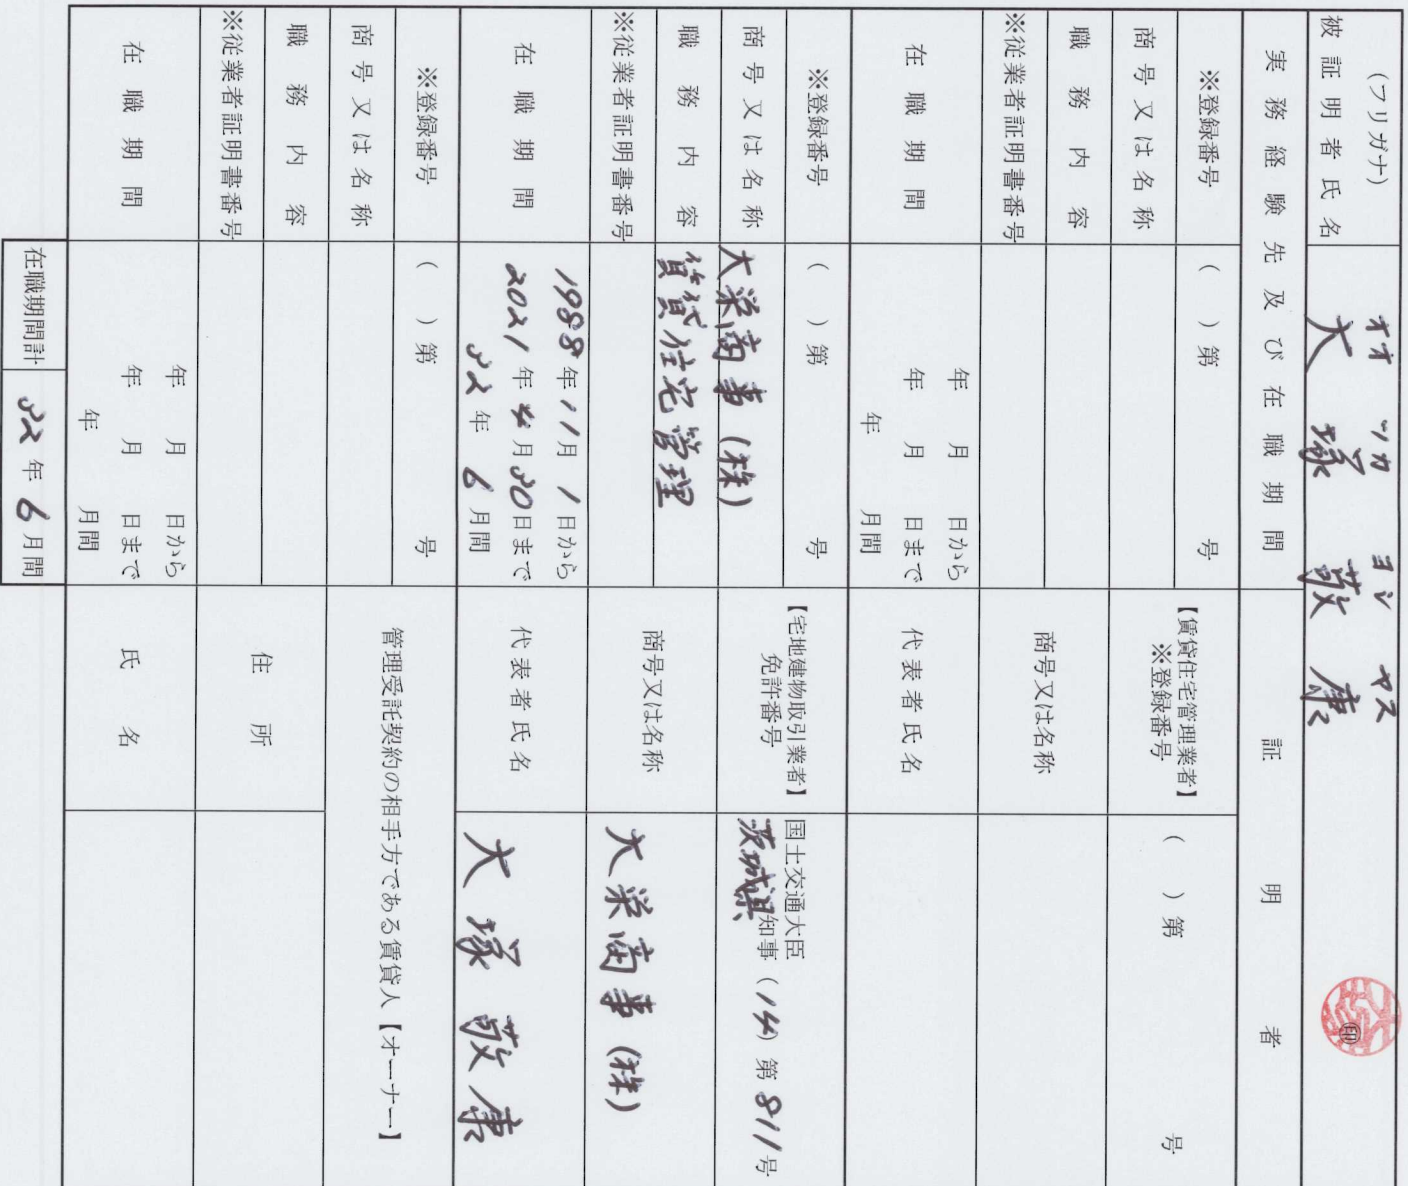 (フリガナ) オオ ツカ ヨシ ヤス
被証明者氏名 大塚 敬康 ㊞
実務経験先及び在職期間 証明者
※登録番号 ( )第 号
商号又は名称
職務内容
※従業者証明書番号
在職期間 年 月 日から
年 月 日まで
年 月間
【賃貸住宅管理業者】
※登録番号 ( )第 号
商号又は名称
代表者氏名
※登録番号 ( )第 号
商号又は名称 大栄商事(株)
職務内容 賃貸住宅管理
※従業者証明書番号
在職期間 1988年11月1日から
2021年4月30日まで
32年6月間
【宅地建物取引業者】
免許番号 国土交通大臣
茨城県知事(14)第811号
商号又は名称 大栄商事(株)
代表者氏名 大塚敬康
※登録番号 ( )第 号
商号又は名称
職務内容
※従業者証明書番号
在職期間 年 月 日から
年 月 日まで
年 月間
管理受託契約の相手方である賃貸人【オーナー】
住所
氏名
在職期間計 32年6月間